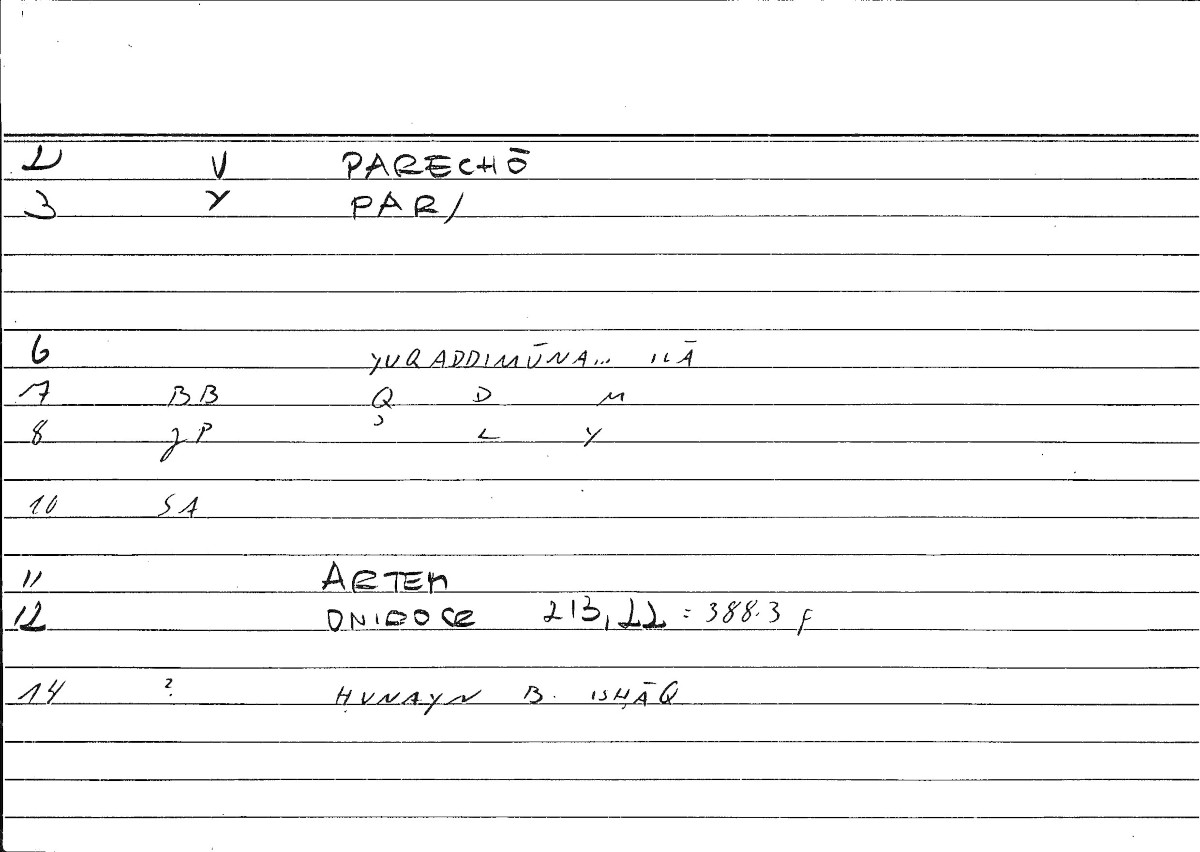 2 V PARECHŌ
3 Y PAR/
6 YUQADDIMŪNA... ILĀ
7 BB Q D M
8 JP ʾ L Y
10 SA
11 ARTEM
12 ONIDOCR 213,22 = 388.3 f
14 ? ḤUNAYN B. ISḤĀQ